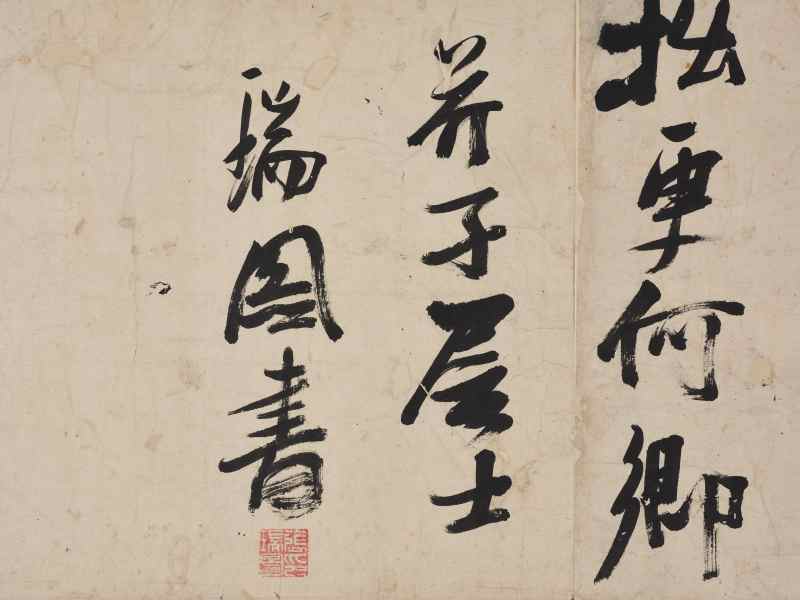 拙何卿
芥子居士
瑞圖書
張瑞圖印